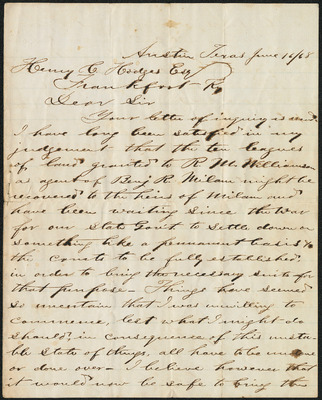 Austin Texas June 16/68
Henry C Hodges Esq
Frankfort Ky
Dear Sir
Your letter of inquiry is
I have long been satisfied in my
judgement that the ten leagues
of land granted to R. M. Williamson
as agent of Benj R. Milam might be
recovered to the heirs of Milam and
have been waiting since the War
for our State Govt to settle down on
something like a permanent basis &
the courts to be fully established
in order to bring the necessary suits for
that purpose - Things have seemed
so uncertain that I was unwilling to
commence, lest what I might do
should, in consequence of this unsta-
ble state of things, all have to be
or done over - I believe however that
it would now be safe to bring the